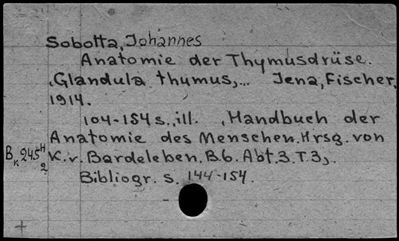 Sobotta, Johannes
Anatomie der Thymusdrüse.
(Glandula thymus,... Jena, Fischer,
1914.
104-154 s., ill. (Handbuch der
Anatomie des Menschen. Hrsg. von
K. v. Bardeleben. B.6. Abt.3. T.3).
Bibliogr. s. 144-154.